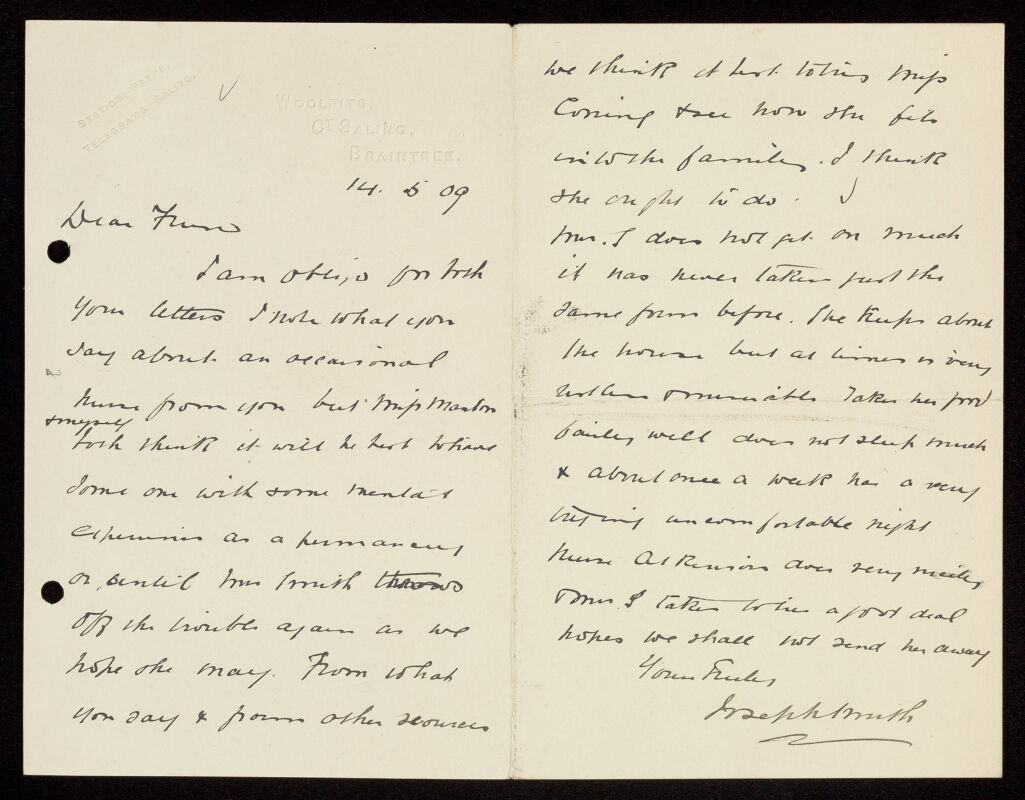 STATION: RAYNE.
TELEGRAMS: SALING.
WOOLPITS,
GT SALING,
BRAINTREE.
14. 5 09
Dear
I am oblig'd for both
your letters I note what you
say about an occasional
nurse from you but Miss
& myself
both think it will be best to have
some one with some mental
experience as a permanency
or until Mrs Smith throws
off the trouble again as we
hope she may. From what
you say & from other sources
we think it best to try Miss
Coming & see how she fits
into the family. I think
she ought to do.
Mrs. S does not get on much
it has never taken just the
same form before. She keeps about
the house but at times is very
restless & miserable Takes her food
fairly well does not sleep much
& about once a week has a very
trying uncomfortable night
Nurse Atkinson does very nicely
& Mrs S takes to her a good deal
hopes we shall not send her away
Yours truly
Joseph Smith